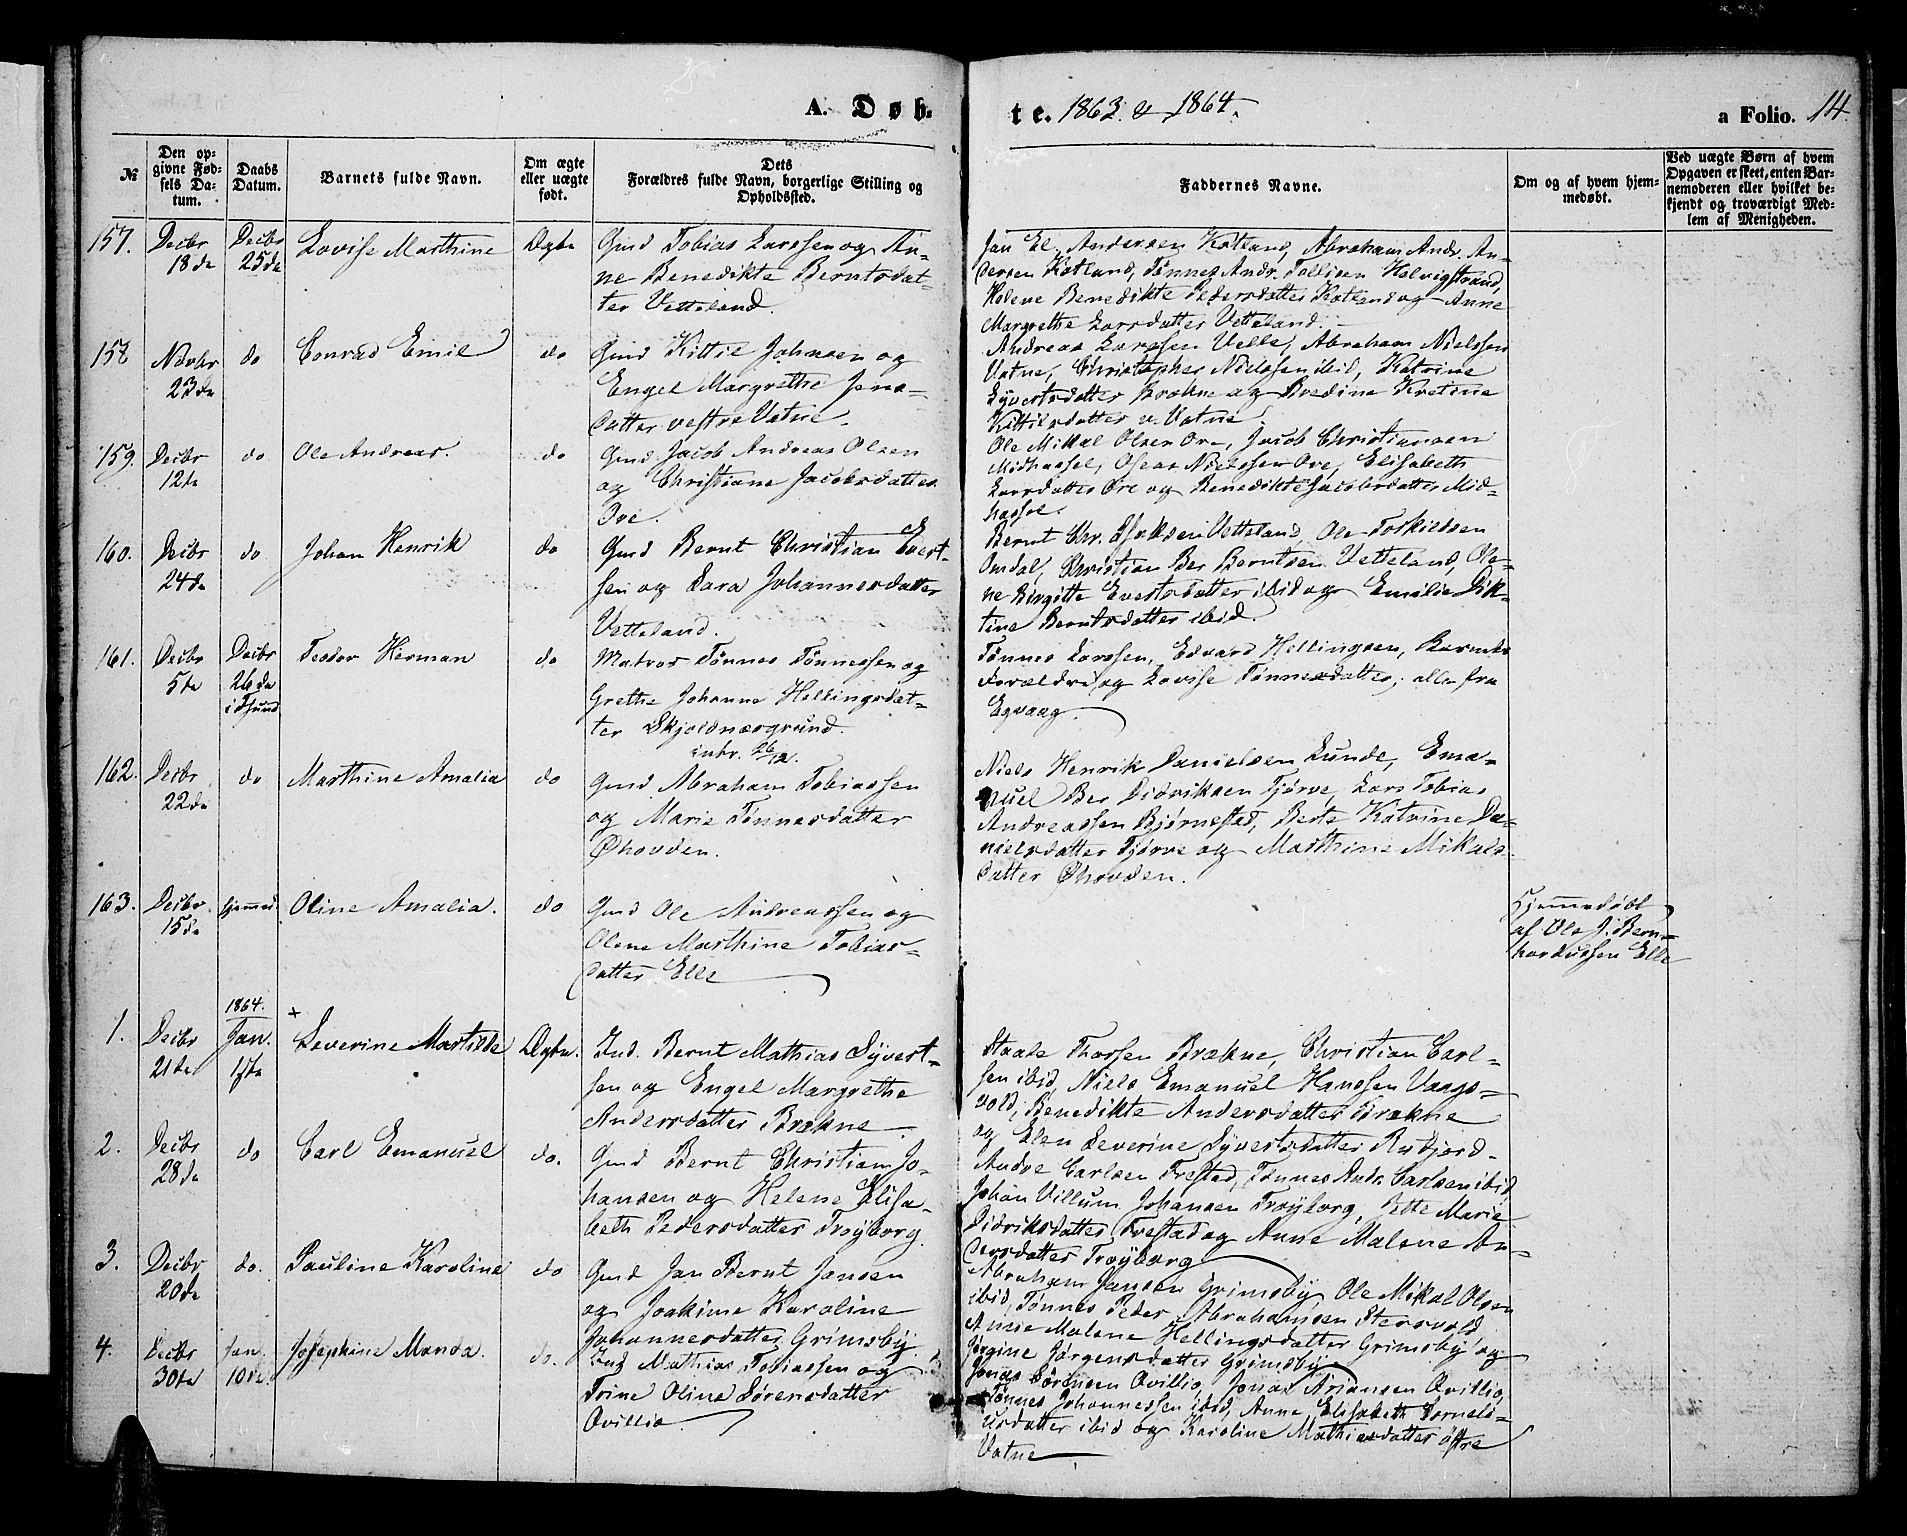 A. Døb-
te. 1863 & 1864.
a Folio. 14
№
Den op-
givne Fød-
sels Da-
tum.
Daabs
Datum.
Barnets fulde Navn.
Om ægte
eller uægte
født.
Dets
Forældres fulde Navn, borgerlige Stilling og
Opholdssted.
Faddernes Navne.
Om og af hvem hjem-
medøbt.
Ved uægte Børn af hvem
Opgaven er skeet, enten Bar-
nemoderen eller hvilket be-
kjendt og troværdigt Med-
lem af Menigheden.
157.
Decbr
18de
Decbr
25de
Lovise Marthine
Ægte
Gmd Tobias Larssen og An-
ne Benedikte Berntsdat-
ter Vetteland.
Jan El. Andersen Kotland, Abraham Andr. An-
dersen Kotland, Tønnes Andr. Tollisen Helvigstrand,
Helene Benedikte Pedersdatter Kotland og Anne
Margrethe Larsdatter Vetteland.
158
Novbr
23de
do
Conrad Emil
do
Gmd Kittil Johnsen og
Engel Margrethe Jens-
datter vestre Vatne.
Andreas Larssen Velle, Abraham Nielssen
Vatne, Christopher Nielssen ibid, Katrine
Syvertsdatter Brækne og Bredine Kristine
Kittilsdatter v. Vatne.
159.
Decbr
12te
do
Ole Andreas.
do
Gmd Jacob Andreas Olsen
og Christiane Jacobsdatter
Ore.
Ole Mikal Olsen Ore, Jacob Christiansen
Midhassel, Oseas Nielssen Ore, Elisabeth
Larsdatter Ore og Benedikte Jacobsdatter Mid-
hassel.
160.
Decbr
24de
do
Johan Henrik
do
Gmd Bernt Christian Evert-
sen og Sara Johannesdatter
Vetteland.
Bernt Chr. Vetteland, Ole Torkildsen
Omdal, Christian Ber Berntsen Vetteland, Ole-
ne Birgitte Evertsdatter ibid og Emilie Dik-
tine Berntsdatter ibid.
161.
Decbr
5te
Decbr
26de
Teodor Herman
do
Matros Tønnes Tønnessen og
Grethe Johanne Hellingsdat-
ter Skjoldnæsgrund.
intr. 26/12.
Tønnes Larssen, Edvard Hellingsen, Barnets
Forældre og Lovise Tønnesdatter, alle fra
Egvaag.
162.
Decbr
22de
do
Marthine Amalia
do
Gmd Abraham Tobiassen
og Marie Tønnesdatter
Øhovden.
Niels Henrik Danielsen Lunde, Ema-
nuel Ber Didriksen Tjørve, Lars Tobias
Andreassen Bjørnestad, Berte Katrine Da-
nielsdatter Tjørve og Marthine Mikals-
datter Øhovden.
163.
Decbr
15de
hjemmed.
Oline Amalia.
do
Gmd Ole Andreassen og
Olene Marthine Tobias-
datter Elle
Hjemmedøbt
af Ole J. Bern-
hardussen Elle
1.
Decbr
21de
1864.
Jan.
1ste
+
Severine Mathilde
Ægte.
Ind. Bernt Mathias Syvert-
sen og Engel Margrethe
Andersdatter Brækne.
Staale Thorsen Brækne, Christian Carl-
sen ibid, Niels Emanuel Hanssen Vaags-
vold, Benedikte Andersdatter Brækne
og Elen Severine Syvertsdatter Rusfjord.
2.
Decbr
28de
do
Carl Emanuel
do.
Gmd Bernt Christian Jo-
hansen og Helene Elisa-
beth Pedersdatter Trøyborg.
Andre Carlsen Frestad, Tønnes Andr. Carlsen ibid
Johan Villum Johansen Trøyborg, Jette Marie
Didriksdatter Frestad og Anne Malene An-
dersdatter Trøyborg
3.
Decbr
20de
do.
Pauline Karoline
do
Gmd Jan Bernt Jansen
og Joakime Karoline
Johannesdatter Grimsby.
Abraham Jansen Grimsby, Ole Mikal Olsen
ibid, Tønnes Peder Abrahamsen Stersvold
Anne Malene Hellingsdatter Grimsby og
Jørgine Jørgensdatter Grimsby
4.
Decbr
30te
Jan.
10de.
Josephine Manda.
do.
Ind Mathias Tobiassen og
Trine Oline Sørensdatter
Qvillio.
Jonas Sørensen Qvillio, Jonas Ariansen Qvillio,
Tønnes Johannessen ibid, Anne Elisabeth Corneli-
usdatter ibid og Karoline Mathiasdatter østre
Vatne